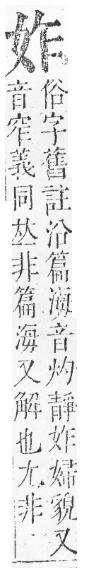 妰
俗字舊註沿篇海音灼靜妰婦貌又
音窄義同𠀤非篇海又解也尤非